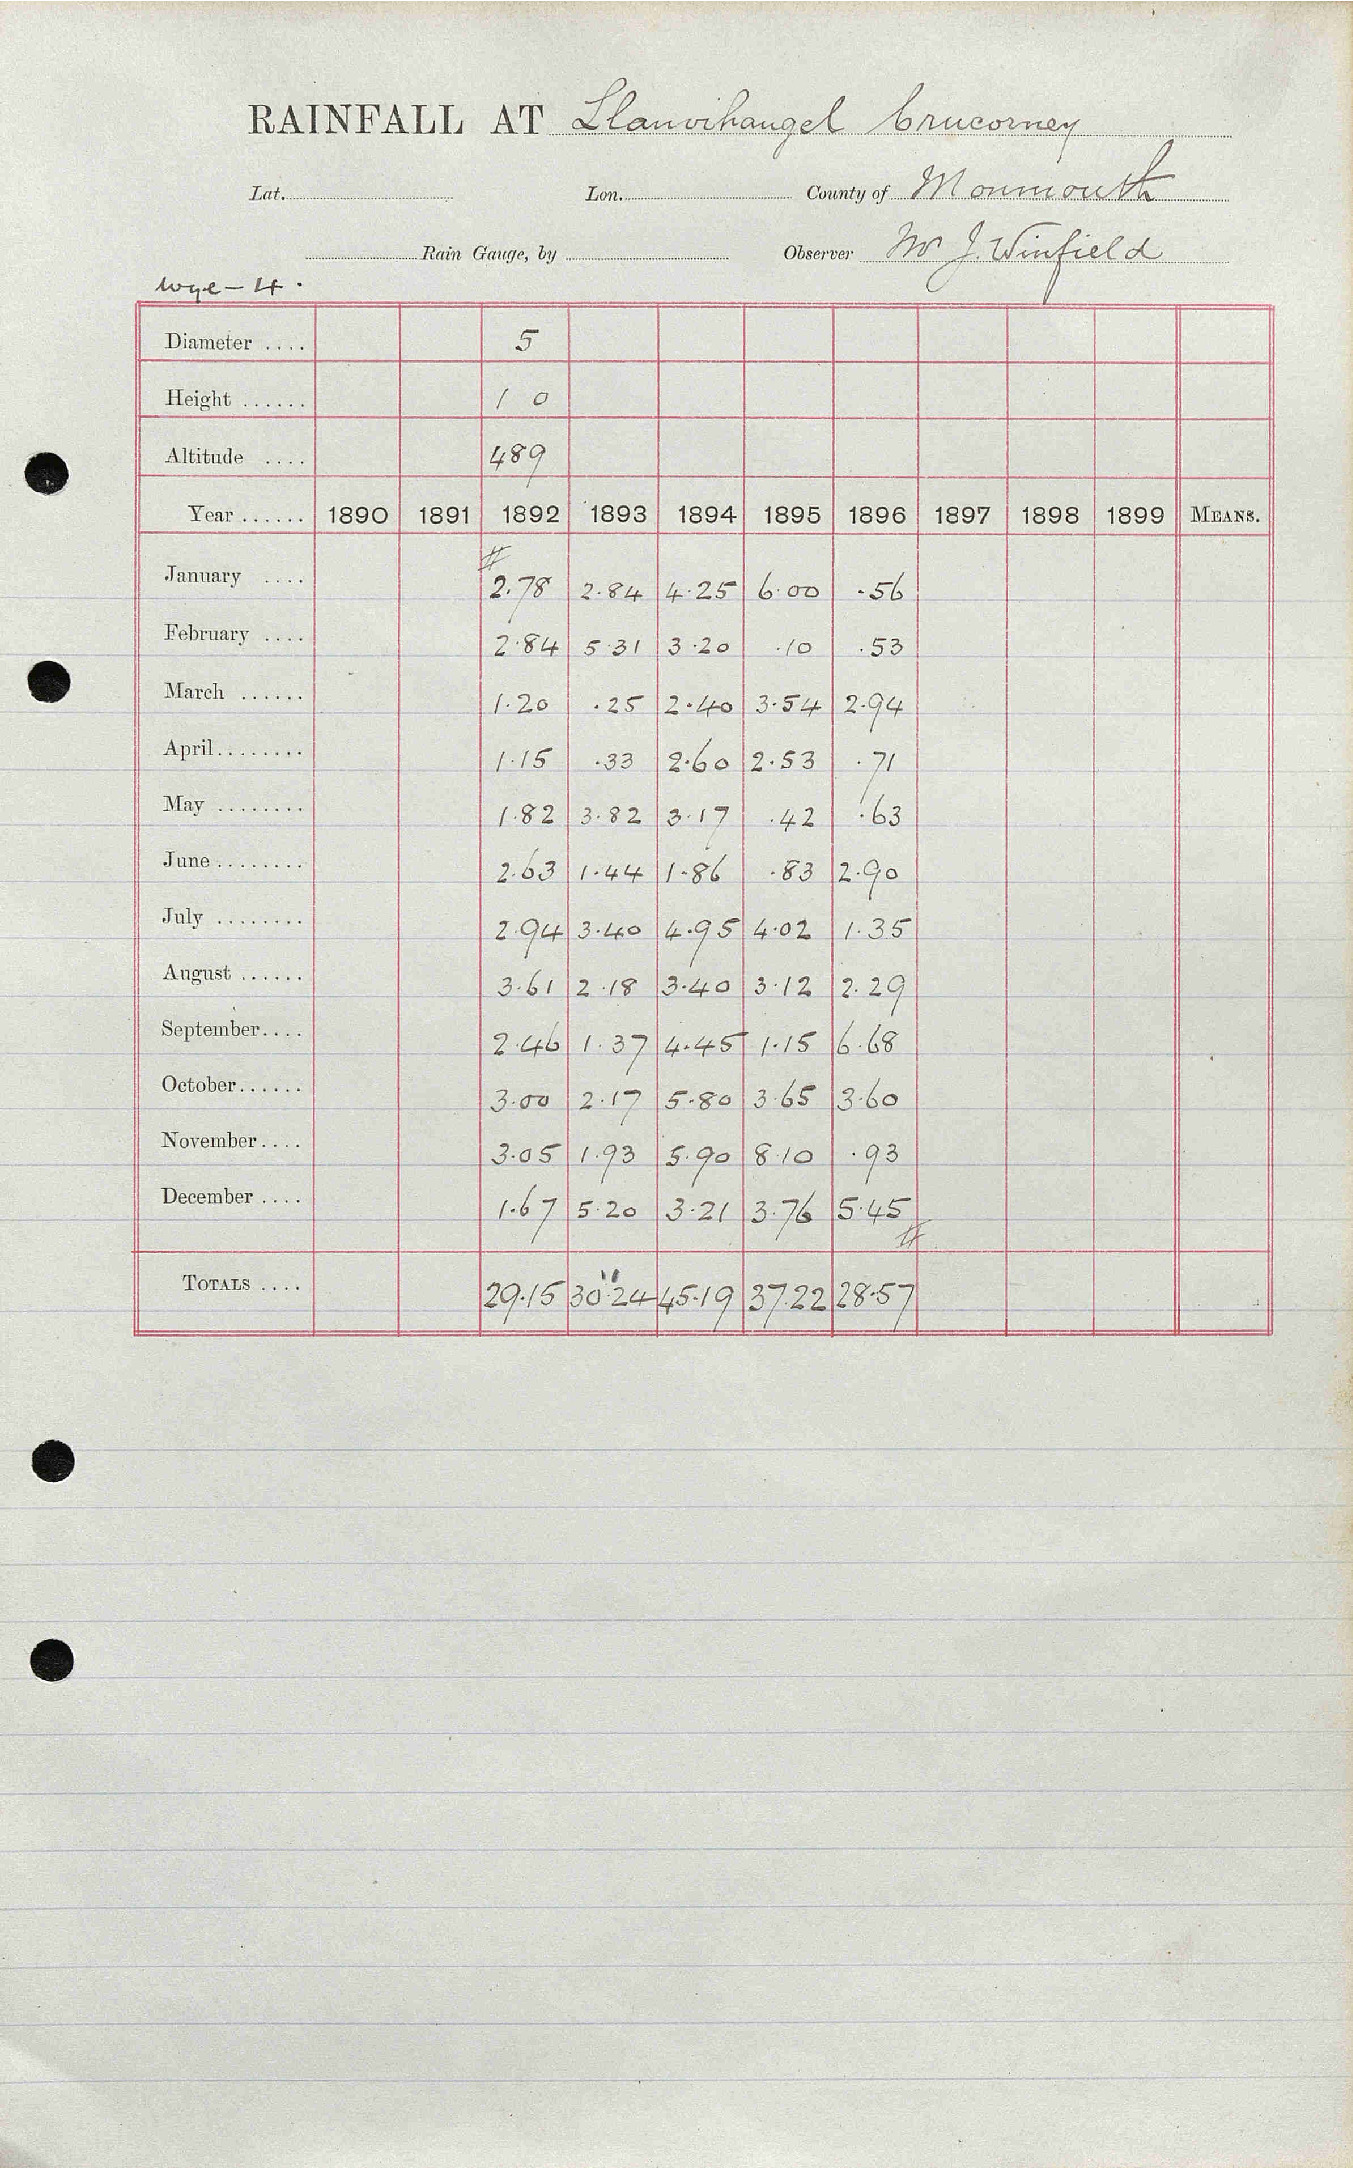 RAINFALL AT Llanvihangel Crucorney
Lat. Lon. County of Monmouth
Rain Gauge, by Observer Mr J. Winfield
Wye - 4.
Diameter .... 5
Height ...... 1 0
Altitude .... 489
Year ...... 1890 1891 1892 1893 1894 1895 1896 1897 1898 1899 MEANS.
#
January .... 2.78 2.84 4.25 6.00 .56
February .... 2.84 5.31 3.20 .10 .53
March ...... 1.20 .25 2.40 3.54 2.94
April........ 1.15 .33 2.60 2.53 .71
May ........ 1.82 3.82 3.17 .42 .63
June ........ 2.63 1.44 1.86 .83 2.90
July ........ 2.94 3.40 4.95 4.02 1.35
August ...... 3.61 2.18 3.40 3.12 2.29
September.... 2.46 1.37 4.45 1.15 6.68
October...... 3.00 2.17 5.80 3.65 3.60
November.... 3.05 1.93 5.90 8.10 .93
December .... 1.67 5.20 3.21 3.76 5.45
#
TOTALS .... 29.15 30.24 45.19 37.22 28.57